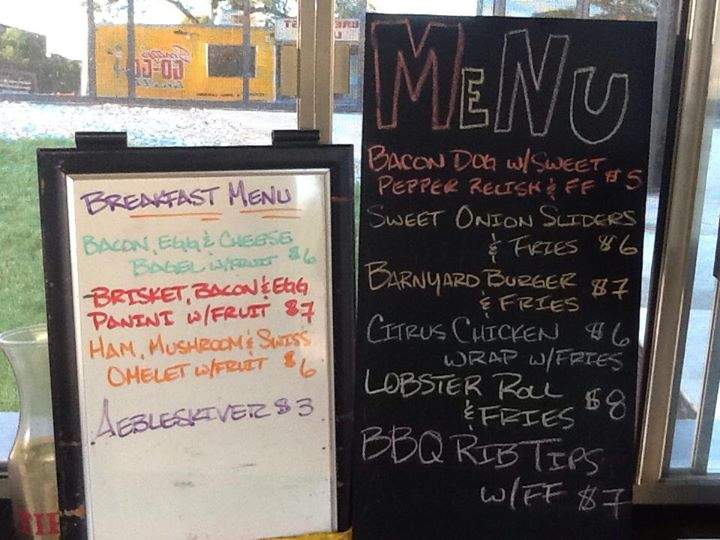 BREAKFAST MENU
BACON, EGG & CHEESE
BAGEL W/FRUIT $6
BRISKET, BACON & EGG
PANINI W/FRUIT $7
HAM, MUSHROOM & SWISS
OMELET W/FRUIT $6
AEBLESKIVER $3
MENU
BACON DOG W/SWEET
PEPPER RELISH & FF $5
SWEET ONION SLIDERS
& FRIES $6
BARNYARD BURGER
& FRIES $7
CITRUS CHICKEN $6
WRAP W/FRIES
LOBSTER ROLL
& FRIES $8
BBQ RIB TIPS
W/FF $7
GO-GO